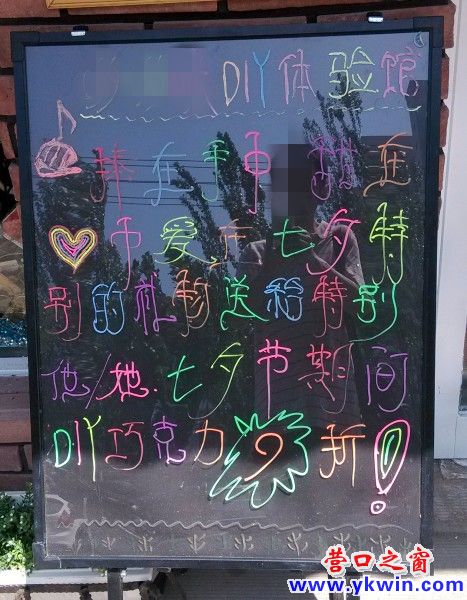 DIY体验馆
捧在手中 甜在
中 爱在七夕 特
别的礼物送给特别
他/她.七夕节期间
DIY巧克力9折!
营口之窗
www.ykwin.com